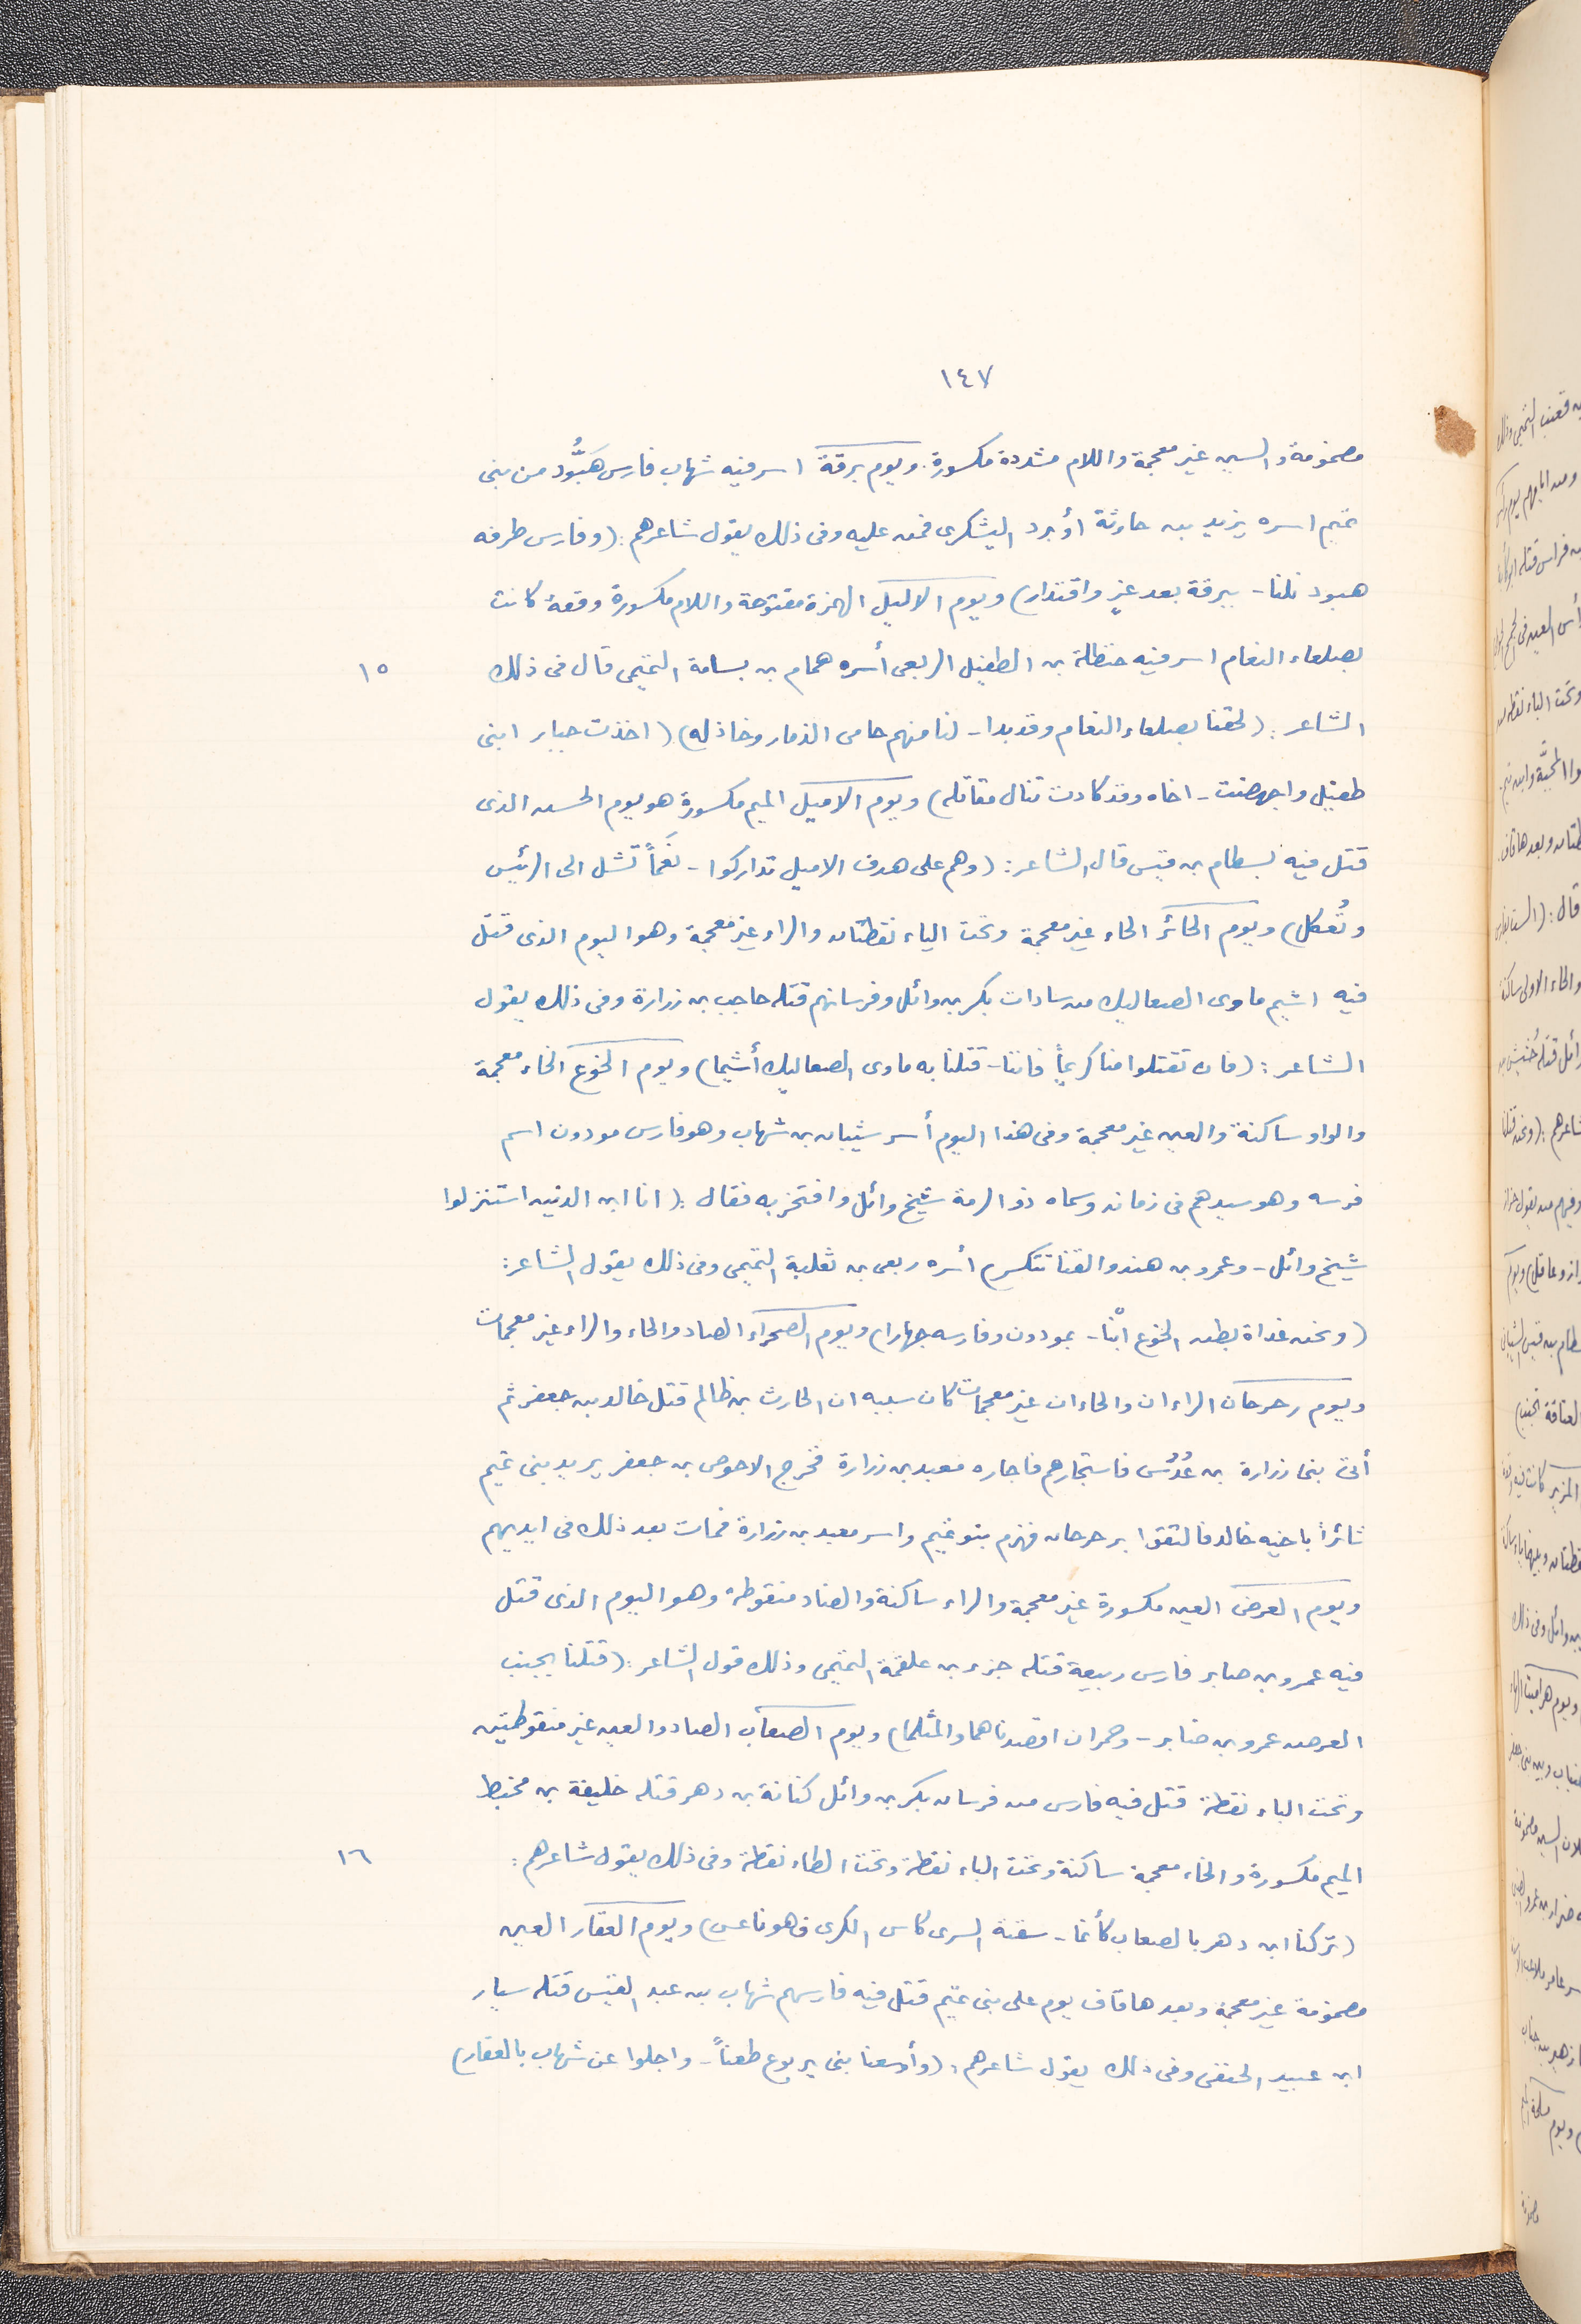 ١٤٧
مضمومة والسين غير معجمة واللام مشددة مكسورة. ويوم برقة اسر فيه شهاب فارس هَبُّود من بنى
تميم اسره يزيد بن حارثة أو برد اليشكرى فمن عليه وفى ذلك يقول شاعرهم: (وفارس طرفه
هبود نلنا - ببرقة بعد عزٍ واقتدار) ويوم الاليل الهمزة مفتوحة واللام مكسورة وقعة كانت
بصلعاء النعام اسر فيه حنظلة بن الطفيل الربعى أسره همام بن بسامة التميمى قال فى ذلك
١٥
الشاعر: (لحقنا بصلعاء النعام وقد بدا - لنا منهم حامى الذمار وخاذله) (اخذت خيار ابنى
طفيل واجهضت - اخاه وقد كادت تنال مقاتله) ويوم الاميل الميم مكسورة هو يوم الحسن الذى
قتل فيه بسطام بن قيس قال الشاعر: (وهم على هدف الاميل تداركوا - نَعَماً تشل الى الرئيس
وتُعكل) ويوم الحائر الحاء غير معجمة وتحت الياء نقطتان والراء غير معجمة وهو اليوم الذى قتل
فيه اشيم ماوى الصعاليك من سادات بكر بن وائل وفرسانهم قتله حاجب بن زرارة وفى ذلك يقول
الشاعر: (فان تقتلوا منا كريماً فاننا - قتلنا به ماوى الصعاليك أشيما) ويوم الخوع الخاء معجمة
والواو ساكنة والعين غير معجمة وفى هذا اليوم أسر شيبان بن شهاب وهو فارس مودون اسم
فرسه وهو سيدهم فى زمانه وسماه ذو الرمة شيخ وائل وافتخر به فقال: (انا ابن الذين استنزلوا
شيخ وائل - وعمرو بن هند والقنا تتكسر) أسره ربعى بن ثعلبة التميمى وفى ذلك يقول الشاعر:
(ونحن غداة بطن الخوع ابْنا - بمودون وفارسه جهارا) ويوم الصحراء الصاد والحاء والراء غير معجمات
ويوم رحرحان الراءان والحاءان غير معجمات كان سببه ان الحارث بن ظالم قتل خالد بن جعفر ثم
أتى بنى زرارة بن عُدُس فاستجارهم فاجاره معبد بن زرارة فخرج الاحوص بن جعفر يريد بنى تميم
ثائراً باخيه خالد فالتقوا برحرحان فهزم بنو تميم واسر معبد بن زرارة فمات بعد ذلك فى ايديهم
ويوم العرض العين مكسورة غير معجمة والراء ساكنة والضاد منقوطة وهو اليوم الذى قتل
فيه عمرو بن صابر فارس ربيعة قتله جزء بن علقمة التميمى وذلك قول الشاعر: (قتلنا بجنب
العرض عمرو بن صابر - وحمران اقصدناهما والمثلما) ويوم الصعاب الصاد والعين غير منقوطتين
وتحت الباء نقطة قتل فيه فارس من فرسان بكر بن وائل كنانة بن دهر قتله خليفة بن مخبط
الميم مكسورة والخاء معجمة ساكنة وتحت الباء نقطة وتحت الطاء نقطة وفى ذلك يقول شاعرهم:
١٦
(تركنا ابن دهر بالصعاب كأنما - سقته السرى كاس الكرى فهو ناعس) ويوم العقار العين
مضمومة غير معجمة وبعدها قاف يوم على بنى تميم قتل فيه فارسهم شهاب بن عبد القيس قتله سيار
ابن عبيد الحنفى وفى ذلك يقول شاعرهم: (وأوسعنا بنى يربوع طعناً - واجلوا عن شهاب بالعقار)